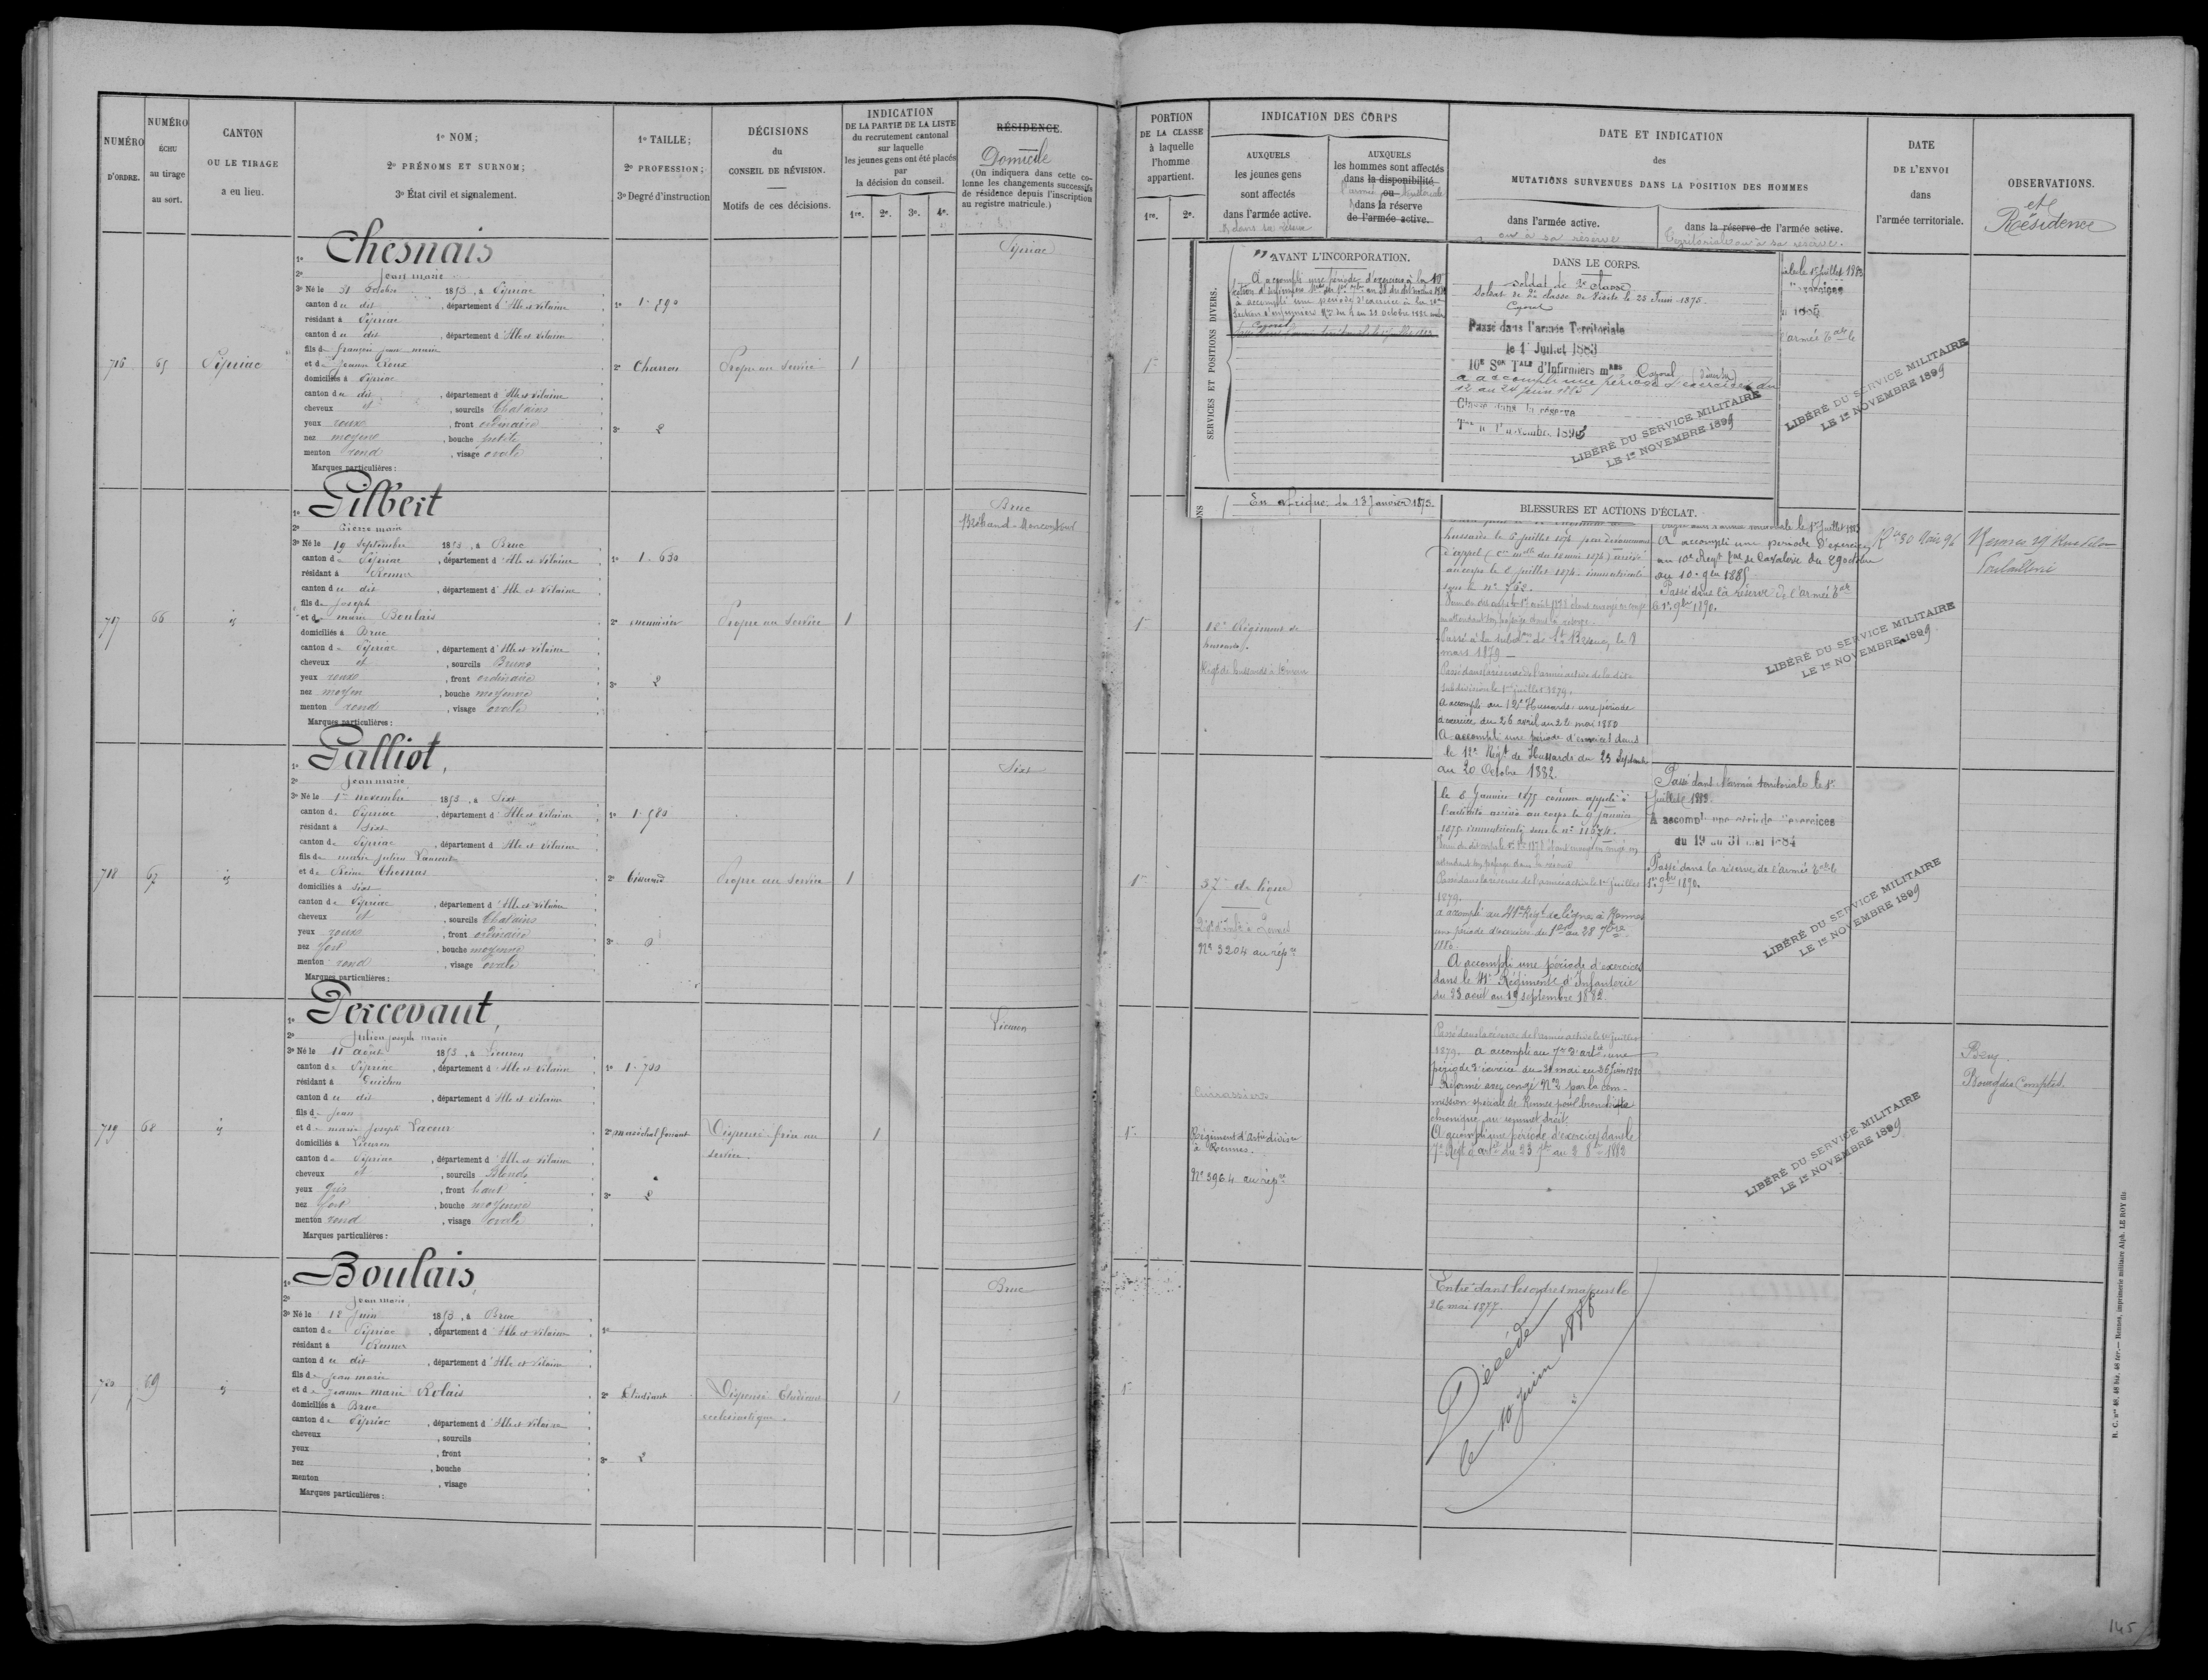 NUMÉRO D'ORDRE.
NUMÉRO ÉCHU au tirage au sort.
CANTON OU LE TIRAGE a eu lieu.
1º NOM;
2º PRÉNOMS ET SURNOM;
3º État civil et signalement.
1º TAILLE;
2º PROFESSION;
3º Degré d'instruction
DÉCISIONS du CONSEIL DE RÉVISION.
Motifs de ces décisions.
INDICATION
DE LA PARTIE DE LA LISTE
du recrutement cantonal
sur laquelle
les jeunes gens ont été placés
par
la décision du conseil.
1re. 2e. 3e. 4e.
RÉSIDENCE.
Domicile
(On indiquera dans cette co-
lonne les changements successifs
de résidence depuis l'inscription
au registre matricule.)
716
65
Pipriac
1º Chesnais
2º Jean marie
3º Né le 31 Octobre 1853, à Pipriac
canton du dit, département d'Ille et Vilaine
résidant à Pipriac
canton du dit, département d'Ille et Vilaine
fils de françois jean marie
et de Jeanne
domiciliés à Pipriac
canton du dit, département d'Ille et Vilaine
cheveux et, sourcils Chatains
yeux roux, front ordinaire
nez moyen, bouche petite
menton rond, visage ovale
Marques particulières :
1º 1.590
2º Charron
3º 2
Propre au Service
1
Pipriac
717
66
id
1º Gilbert
2º Pierre marie
3º Né le 19 Septembre 1853, à Bruc
canton de Pipriac, département d'Ille et Vilaine
résidant à Rennes
canton du dit, département d'Ille et Vilaine
fils de Joseph
et de marie Boulais
domiciliés à Bruc
canton de Pipriac, département d'Ille et Vilaine
cheveux et, sourcils Bruns
yeux roux, front ordinaire
nez moyen, bouche moyenne
menton rond, visage ovale
Marques particulières :
1º 1.630
2º menuisier
3º 2
Propre au Service
1
Bruc
Bréhand-Moncontour
718
67
id
1º Galliot,
2º Jean marie
3º Né le 1er novembre 1853, à Sixt
canton de Pipriac, département d'Ille et Vilaine
résidant à Sixt
canton de Pipriac, département d'Ille et Vilaine
fils de marie Julien
et de Reine Thomas
domiciliés à Sixt
canton de Pipriac, département d'Ille et Vilaine
cheveux et, sourcils Chatains
yeux roux, front ordinaire
nez fort, bouche moyenne
menton rond, visage ovale
Marques particulières :
1º 1.580
2º Tisserand
3º 0
Propre au Service
1
Sixt
719
68
id
1º Percevaut,
2º Julien Joseph marie
3º Né le 11 août 1853, à Lieuron
canton de Pipriac, département d'Ille et Vilaine
résidant à Guichen
canton du dit, département d'Ille et Vilaine
fils de Jean
et de marie Joseph Lacour
domiciliés à Lieuron
canton de Pipriac, département d'Ille et Vilaine
cheveux et, sourcils Blonds
yeux gris, front haut
nez fort, bouche moyenne
menton rond, visage ovale
Marques particulières :
1º 1.700
2º maréchal ferrant
3º 2
Dispensé frère au
service.
1
Lieuron
720
69
id
1º Boulais,
2º Jean marie
3º Né le 12 Juin 1853, à Bruc
canton de Pipriac, département d'Ille et Vilaine
résidant à Rennes
canton du dit, département d'Ille et Vilaine
fils de Jean marie
et de Jeanne marie Rolais
domiciliés à Bruc
canton de Pipriac, département d'Ille et Vilaine
cheveux, sourcils
yeux, front
nez, bouche
menton, visage
Marques particulières :
1º
2º Etudiant
3º 2
Dispensé Etudiant
ecclésiastique.
1
Bruc
PORTION
DE LA CLASSE
à laquelle
l'homme
appartient.
1re. 2e.
INDICATION DES CORPS
AUXQUELS
les jeunes gens
sont affectés
dans l'armée active.
& dans sa réserve
AUXQUELS
les hommes sont affectés
dans la disponibilité
l'armée ou territoriale
& dans la réserve
de l'armée active.
DATE ET INDICATION
des
MUTATIONS SURVENUES DANS LA POSITION DES HOMMES
dans l'armée active.
ou à sa réserve
dans la réserve de l'armée active.
Territoriale ou à sa réserve.
DATE
DE L'ENVOI
dans
l'armée territoriale.
OBSERVATIONS.
et
Résidence
1e
SERVICES ET POSITIONS DIVERS.
AVANT L'INCORPORATION.
A accompli une période d'exercice à la 10
à accompli une période d'exercice à la 10e
Section d'infirmiers Mres du 4 au 31 octobre 1882
DANS LE CORPS.
Soldat de 2e classe
Soldat de 2e classe de Visite le 25 Juin 1875.
Caporal
Passé dans l'armée Territoriale
le 1er Juillet 1883
10E Son TALE d'Infirmiers mRES Caporal
a accompli une période d'exercices du
12 au 24 Juin 1885
Classé dans la réserve
Tere le 1er novembre 1893
LIBÉRÉ DU SERVICE MILITAIRE
LE 1er NOVEMBRE 1899
En afrique. du 13 Janvier 1875.
BLESSURES ET ACTIONS D'ÉCLAT.
le 1er Juillet 1883
exercices
l'armée Tale le
LIBÉRÉ DU SERVICE MILITAIRE
LE 1er NOVEMBRE 1899
1e
12e Régiment de
hussards.
Regt de hussards à Dinan
hussards le 6 juillet 1874
d'appel
au corps le 8 juillet 1874 immatriculé
sous le nº 762.
Passé à la subdon de St Brieuc le 8
mars 1879
Passé dans la réserve de l'armée active de la dite
subdivision le 1er juillet 1879.
A accompli au 12e Hussards une période
d'exercice du 26 avril au 22 mai 1880
A accompli une période d'exercices dans
le 12e Régt de Hussards du 23 Septembre
au 20 Octobre 1882.
le 1er Juillet 1883
A accompli une période d'exercices
au 10e Regt Tal de Cavalerie du 29 octobre
au 10 9bre 1885
Passé dans la réserve de l'armée Tale
le 1er 9bre 1890.
Rne 30 Mars 96
LIBÉRÉ DU SERVICE MILITAIRE
LE 1er NOVEMBRE 1899
1e
37e de ligne
Nº 3204 au répre
le 8 Janvier 1875 comme appelé à
l'activité arrivé au corps le 9 Janvier
1875 immatriculé sous le nº 11674.
Passé dans la réserve de l'armée active le 1er Juillet
1879.
a accompli au 41e Régt de ligne à Rennes
une période d'exercices du 1er au 28 7bre
1880.
A accompli une période d'exercices
dans le 41e Régiment d'Infanterie
du 23 août au 19 septembre 1882.
Passé dans l'armée territoriale le 1er
Juillet 1883.
A accompli une période d'exercices
du 19 au 31 mai 1884
Passé dans la réserve de l'armée Tale le
1er 9bre 1890.
LIBÉRÉ DU SERVICE MILITAIRE
LE 1er NOVEMBRE 1899
1e
Cuirassiers
Régiment d'Artie divisre
à Rennes.
Nº 3964 au répre
Passé dans la réserve de l'armée active le 1er juillet
1879. a accompli au 7e d'artie une
période d'exercice du 31 mai au 26 Juin 1880
Réformé avec congé Nº 2 par la com-
mission spéciale de Rennes pour bronchite
chronique au sommet droit
A accompli une période d'exercices dans le
7e Regt d'artie du 23 au 2 8bre 1882
Bruz
Bourg des Comptes
LIBÉRÉ DU SERVICE MILITAIRE
LE 1er NOVEMBRE 1899
1e
Entré dans les ordres majeurs le
26 mai 1877.
Décédé
le 10 Juin 1888
R. C. nos 48, 48 bis, 48 ter.— Rennes, imprimerie militaire Alph. LE ROY fils
145